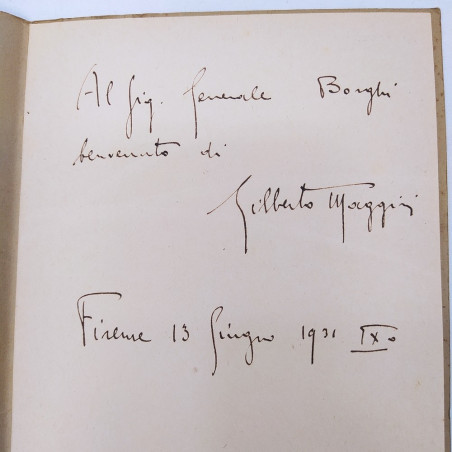 Al Sig. Generale Borghi
benvenuto di
Gilberto Maggini
Firenze 13 Giugno 1931 IXo